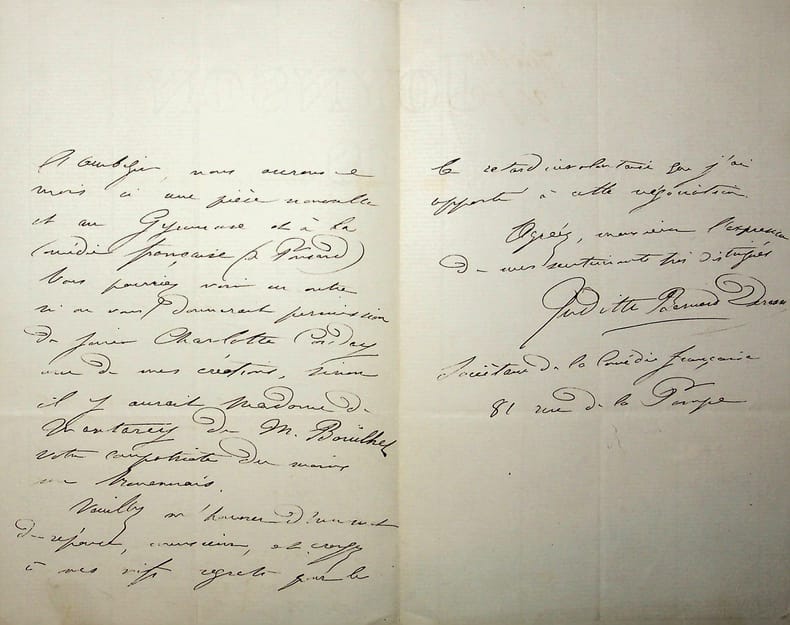 A l'ambigu, nous aurons ce
mois ci une pièce nouvelle
et au Gymnase et à la
Comédie française (de Ponsard)
Vous pourriez voir en outre
si on vous donnerait permission
de jouer Charlotte Corday
une de mes créations, sinon
il y aurait Madame de
Montarcy de M. Bouilhet
votre compatriote du moins
un Rouennais.
Veuillez m'honorer d'un mot
de réponse, monsieur, et croyez
à mes vifs regrets pour le
le retard involontaire que j'ai
apporté à cette négociation.
Agréez, monsieur l'expression
de mes sentiments très distingués
Judith Bernard Derosne
Sociétaire de la Comédie française
81 rue de la Pompe